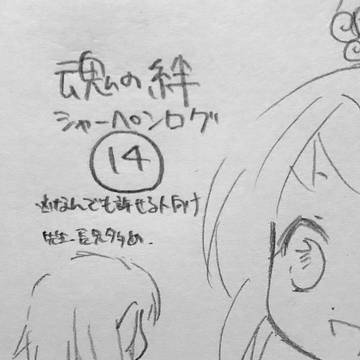 魂の絆
シャーペンログ
14
※なんでも許せる人向け
先生・長兄多め.